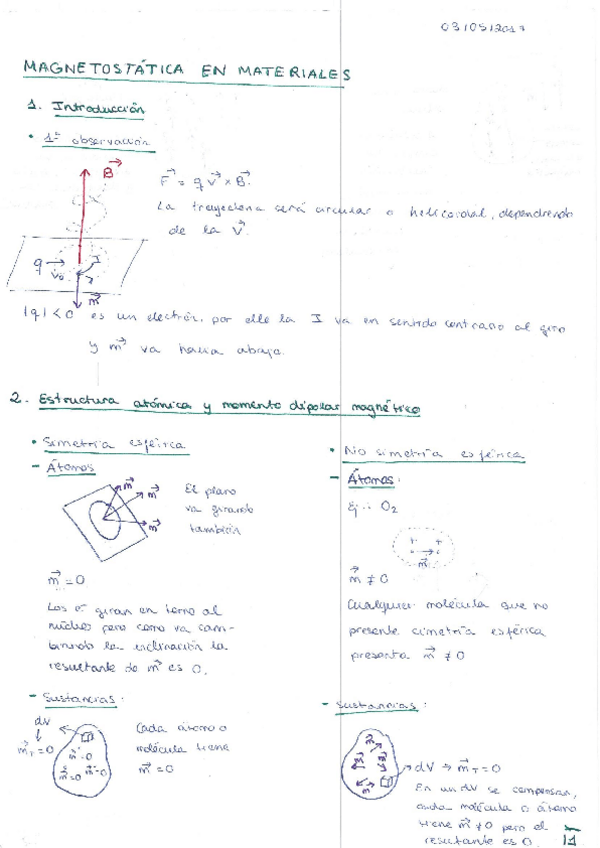 03/05/2017
MAGNETOSTÁTICA EN MATERIALES
1. Introducción
• 1ª observación
B⃗
F⃗ = q v⃗ x B⃗.
La trayectoria será circular o helicoidal, dependiendo
de la v⃗.
q → I
v⃗o
m⃗
|q| < 0 es un electrón, por ello la I va en sentido contrario al giro
y m⃗ va hacia abajo.
2. Estructura atómica y momento dipolar magnético
• Simetría esférica
- Átomos
m⃗ m⃗
m⃗
El plano
va girando
también
m⃗ = 0
Los e⁻ giran en torno al
núcleo pero como va cam-
biando la inclinación la
resultante de m⃗ es 0.
- Sustancias:
dV
m⃗T = 0
m⃗=0
m⃗=0 m⃗=0
Cada átomo o
molécula tiene
m⃗ = 0
• No simetría esférica
- Átomos:
Ej.: O₂
+ +
m⃗
m⃗ ≠ 0
Cualquier molécula que no
presente simetría esférica
presenta m⃗ ≠ 0
- Sustancias:
m⃗
m⃗
dV → m⃗T = 0
En un dV se compensan,
cada molécula o átomo
tiene m⃗ ≠ 0 pero el
resultante es 0.
11